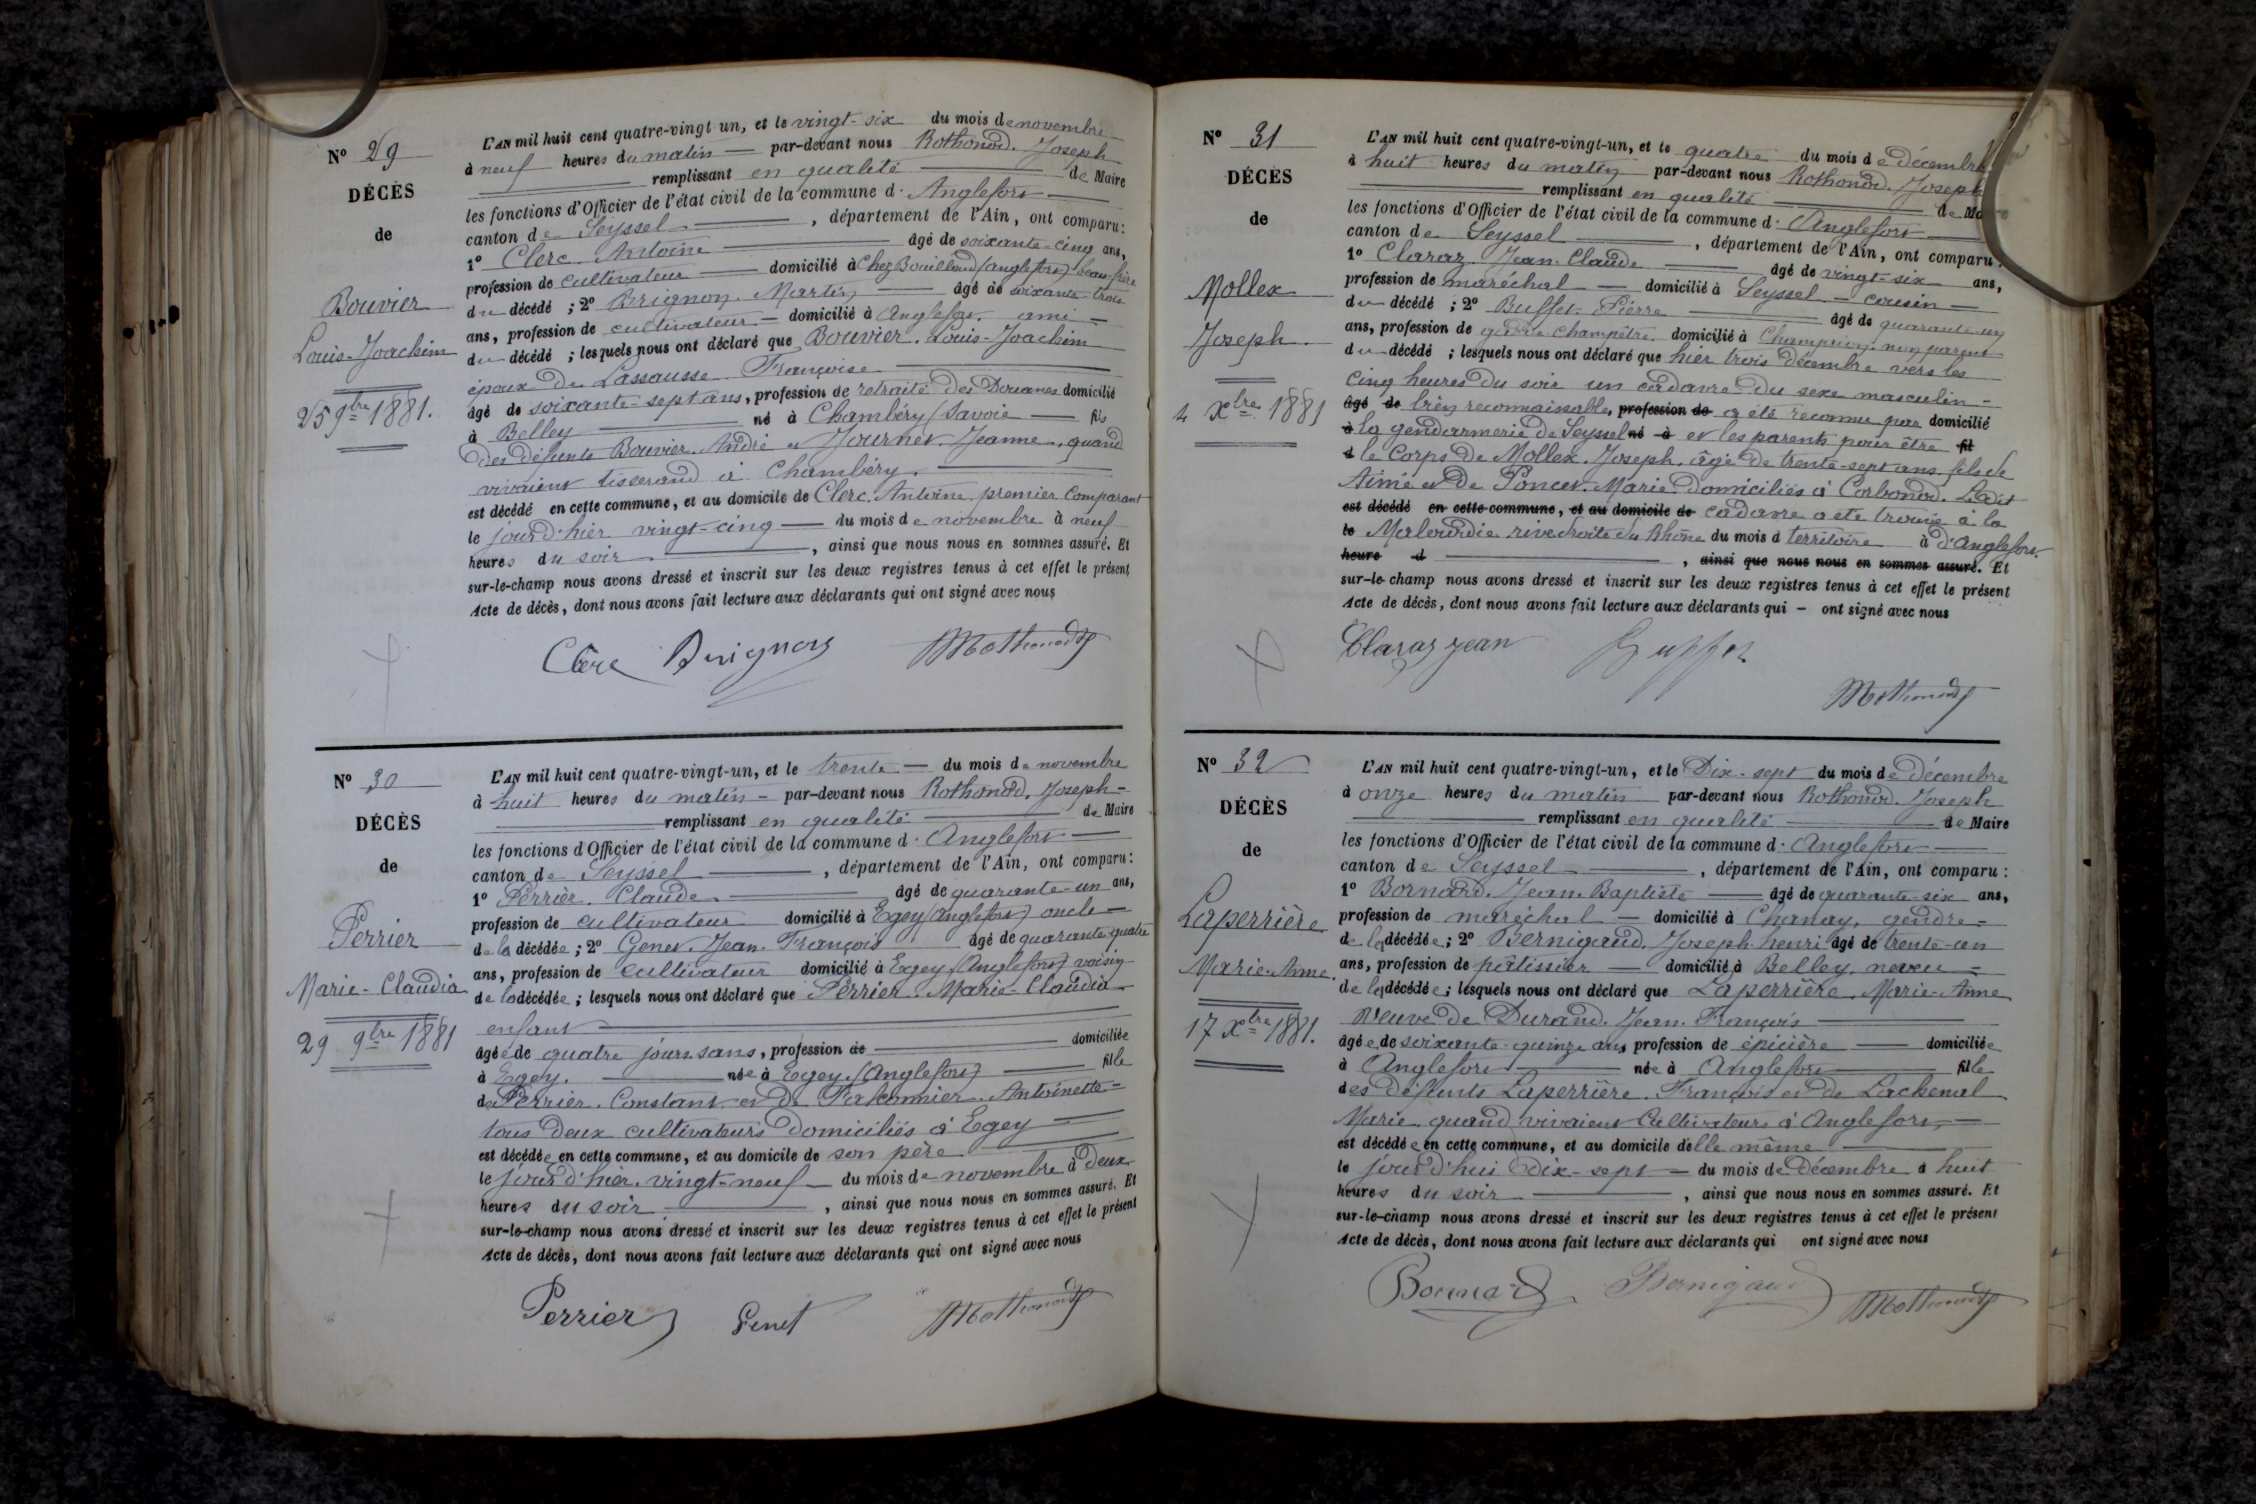 N° 29
DÉCÈS
de
Bouvier
Louis-Joachim
25 9bre 1881.
L'AN mil huit cent quatre-vingt un, et le vingt-six du mois de novembre
à neuf heures du matin par-devant nous Rothonod. Joseph
remplissant en qualité de Maire
les fonctions d'Officier de l'état civil de la commune d' Anglefort
canton de Seyssel, département de l'Ain, ont comparu:
1° Clerc. Antoine âgé de soixante-cinq ans,
profession de cultivateur domicilié à Chez Bouilloud (anglefort) beau-frère
du décédé ; 2° Brignon. Martin âgé de soixante-trois
ans, profession de cultivateur domicilié à Anglefort. ami
du décédé ; lesquels nous ont déclaré que Bouvier. Louis-Joachim
époux de Lassausse Françoise
âgé de soixante-sept ans, profession de retraité des Douanes domicilié
à Belley né à Chambéry (Savoie fils
des défunts Bouvier. André et Journet. Jeanne, quand
vivaient tisserand à Chambéry.
est décédé en cette commune, et au domicile de Clerc. Antoine premier Comparant
le jour d'hier vingt-cinq du mois de novembre à neuf
heures du soir, ainsi que nous nous en sommes assuré. Et
sur-le-champ nous avons dressé et inscrit sur les deux registres tenus à cet effet le présent
Acte de décès, dont nous avons fait lecture aux déclarants qui ont signé avec nous
Clerc Brignon Rothonod
N° 30
DÉCÈS
de
Perrier
Marie-Claudia
29 9bre 1881
L'AN mil huit cent quatre-vingt-un, et le trente du mois de novembre
à huit heures du matin par-devant nous Rothonod. Joseph
remplissant en qualité de Maire
les fonctions d'Officier de l'état civil de la commune d' Anglefort
canton de Seyssel, département de l'Ain, ont comparu:
1° Perrier. Claude. âgé de quarante-un ans,
profession de cultivateur domicilié à Egey (anglefort) oncle
de la décédée ; 2° Genet. Jean. François âgé de quarante-quatre
ans, profession de cultivateur domicilié à Egey (Anglefort) voisin
de la décédée ; lesquels nous ont déclaré que Perrier. Marie-Claudia
enfant
âgée de quatre jours ans, profession de domiciliée
à Egey. née à Egey. (Anglefort) fille
de Perrier. Constant et de Antoinette
tous deux cultivateurs domiciliés à Egey
est décédée en cette commune, et au domicile de son père
le jour d'hier. vingt-neuf du mois de novembre à deux
heures du soir, ainsi que nous nous en sommes assuré. Et
sur-le-champ nous avons dressé et inscrit sur les deux registres tenus à cet effet le présent
Acte de décès, dont nous avons fait lecture aux déclarants qui ont signé avec nous
Perrier Genet Rothonod
N° 31
DÉCÈS
de
Mollex
Joseph.
4 Xbre 1881
L'AN mil huit cent quatre-vingt-un, et le quatre du mois de décembre
à huit heures du matin par-devant nous Rothonod. Joseph
remplissant en qualité de Ma
les fonctions d'Officier de l'état civil de la commune d' Anglefort
canton de Seyssel, département de l'Ain, ont comparu :
1° Claraz Jean. Claude âgé de vingt-six ans,
profession de maréchal domicilié à Seyssel cousin
du décédé ; 2° Buffet. Pierre âgé de quarante-un
ans, profession de garde champêtre domicilié à non parent
du décédé ; lesquels nous ont déclaré que hier trois décembre vers les
cinq heures du soir un cadavre du sexe masculin
âgé de bien reconnaissable, profession de a été reconnu par domicilié
à la gendarmerie de Seyssel né à et les parents pour être fil
d le corps de Mollex. Joseph. âgé de trente-sept ans, fils de
Aimé et de Poncet. Marie domiciliés à Corbonod. Ledit
est décédé en cette commune, et au domicile de cadavre a été trouvé à la
le Malourdie rive droite du Rhône du mois d territoire à d'Anglefort.
heure d, ainsi que nous nous en sommes assuré. Et
sur-le-champ nous avons dressé et inscrit sur les deux registres tenus à cet effet le présent
Acte de décès, dont nous avons fait lecture aux déclarants qui ont signé avec nous
Claraz jean Buffet
Rothonod
N° 32
DÉCÈS
de
Laperrière
Marie-Anne.
17 Xbre 1881.
L'AN mil huit cent quatre-vingt-un, et le Dix-sept du mois de décembre
à onze heures du matin par-devant nous Rothonod. Joseph
remplissant en qualité de Maire
les fonctions d'Officier de l'état civil de la commune d' Anglefort
canton de Seyssel, département de l'Ain, ont comparu :
1° Bornard. Jean. Baptiste âgé de quarante-six ans,
profession de maréchal domicilié à Chanay, gendre
de la décédée ; 2° Bernigaud. Joseph. henri âgé de trente-un
ans, profession de pâtissier domicilié à Belley, neveu
de la décédée ; lesquels nous ont déclaré que Laperrière. Marie-Anne
Veuve de Durand. Jean. François
âgée de soixante-quinze ans, profession de épicière domiciliée
à Anglefort née à Anglefort fille
des défunts Laperrière. François et de Lachenal
Marie quand vivaient Cultivateurs à Anglefort,
est décédée en cette commune, et au domicile d'elle même
le jour d'hui dix-sept du mois de décembre à huit
heures du soir, ainsi que nous nous en sommes assuré. Et
sur-le-champ nous avons dressé et inscrit sur les deux registres tenus à cet effet le présent
Acte de décès, dont nous avons fait lecture aux déclarants qui ont signé avec nous
Bornard Bernigaud Rothonod